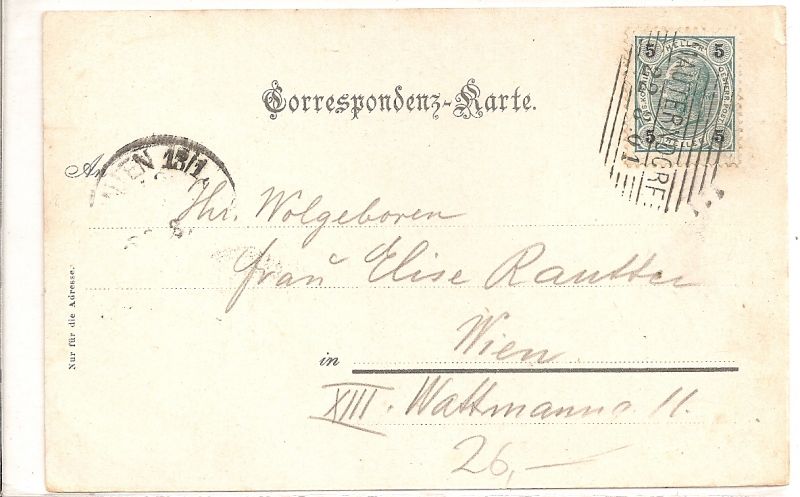 5 HELLER 5
5 HELLER 5
MAUTERNDORF
Correspondenz-Karte.
WIEN 13/1
An
Ihr. Wolgeboren
Frau Elise Rautter
in Wien
XIII. Wattmanng. 11.
26,—
Nur für die Adresse.